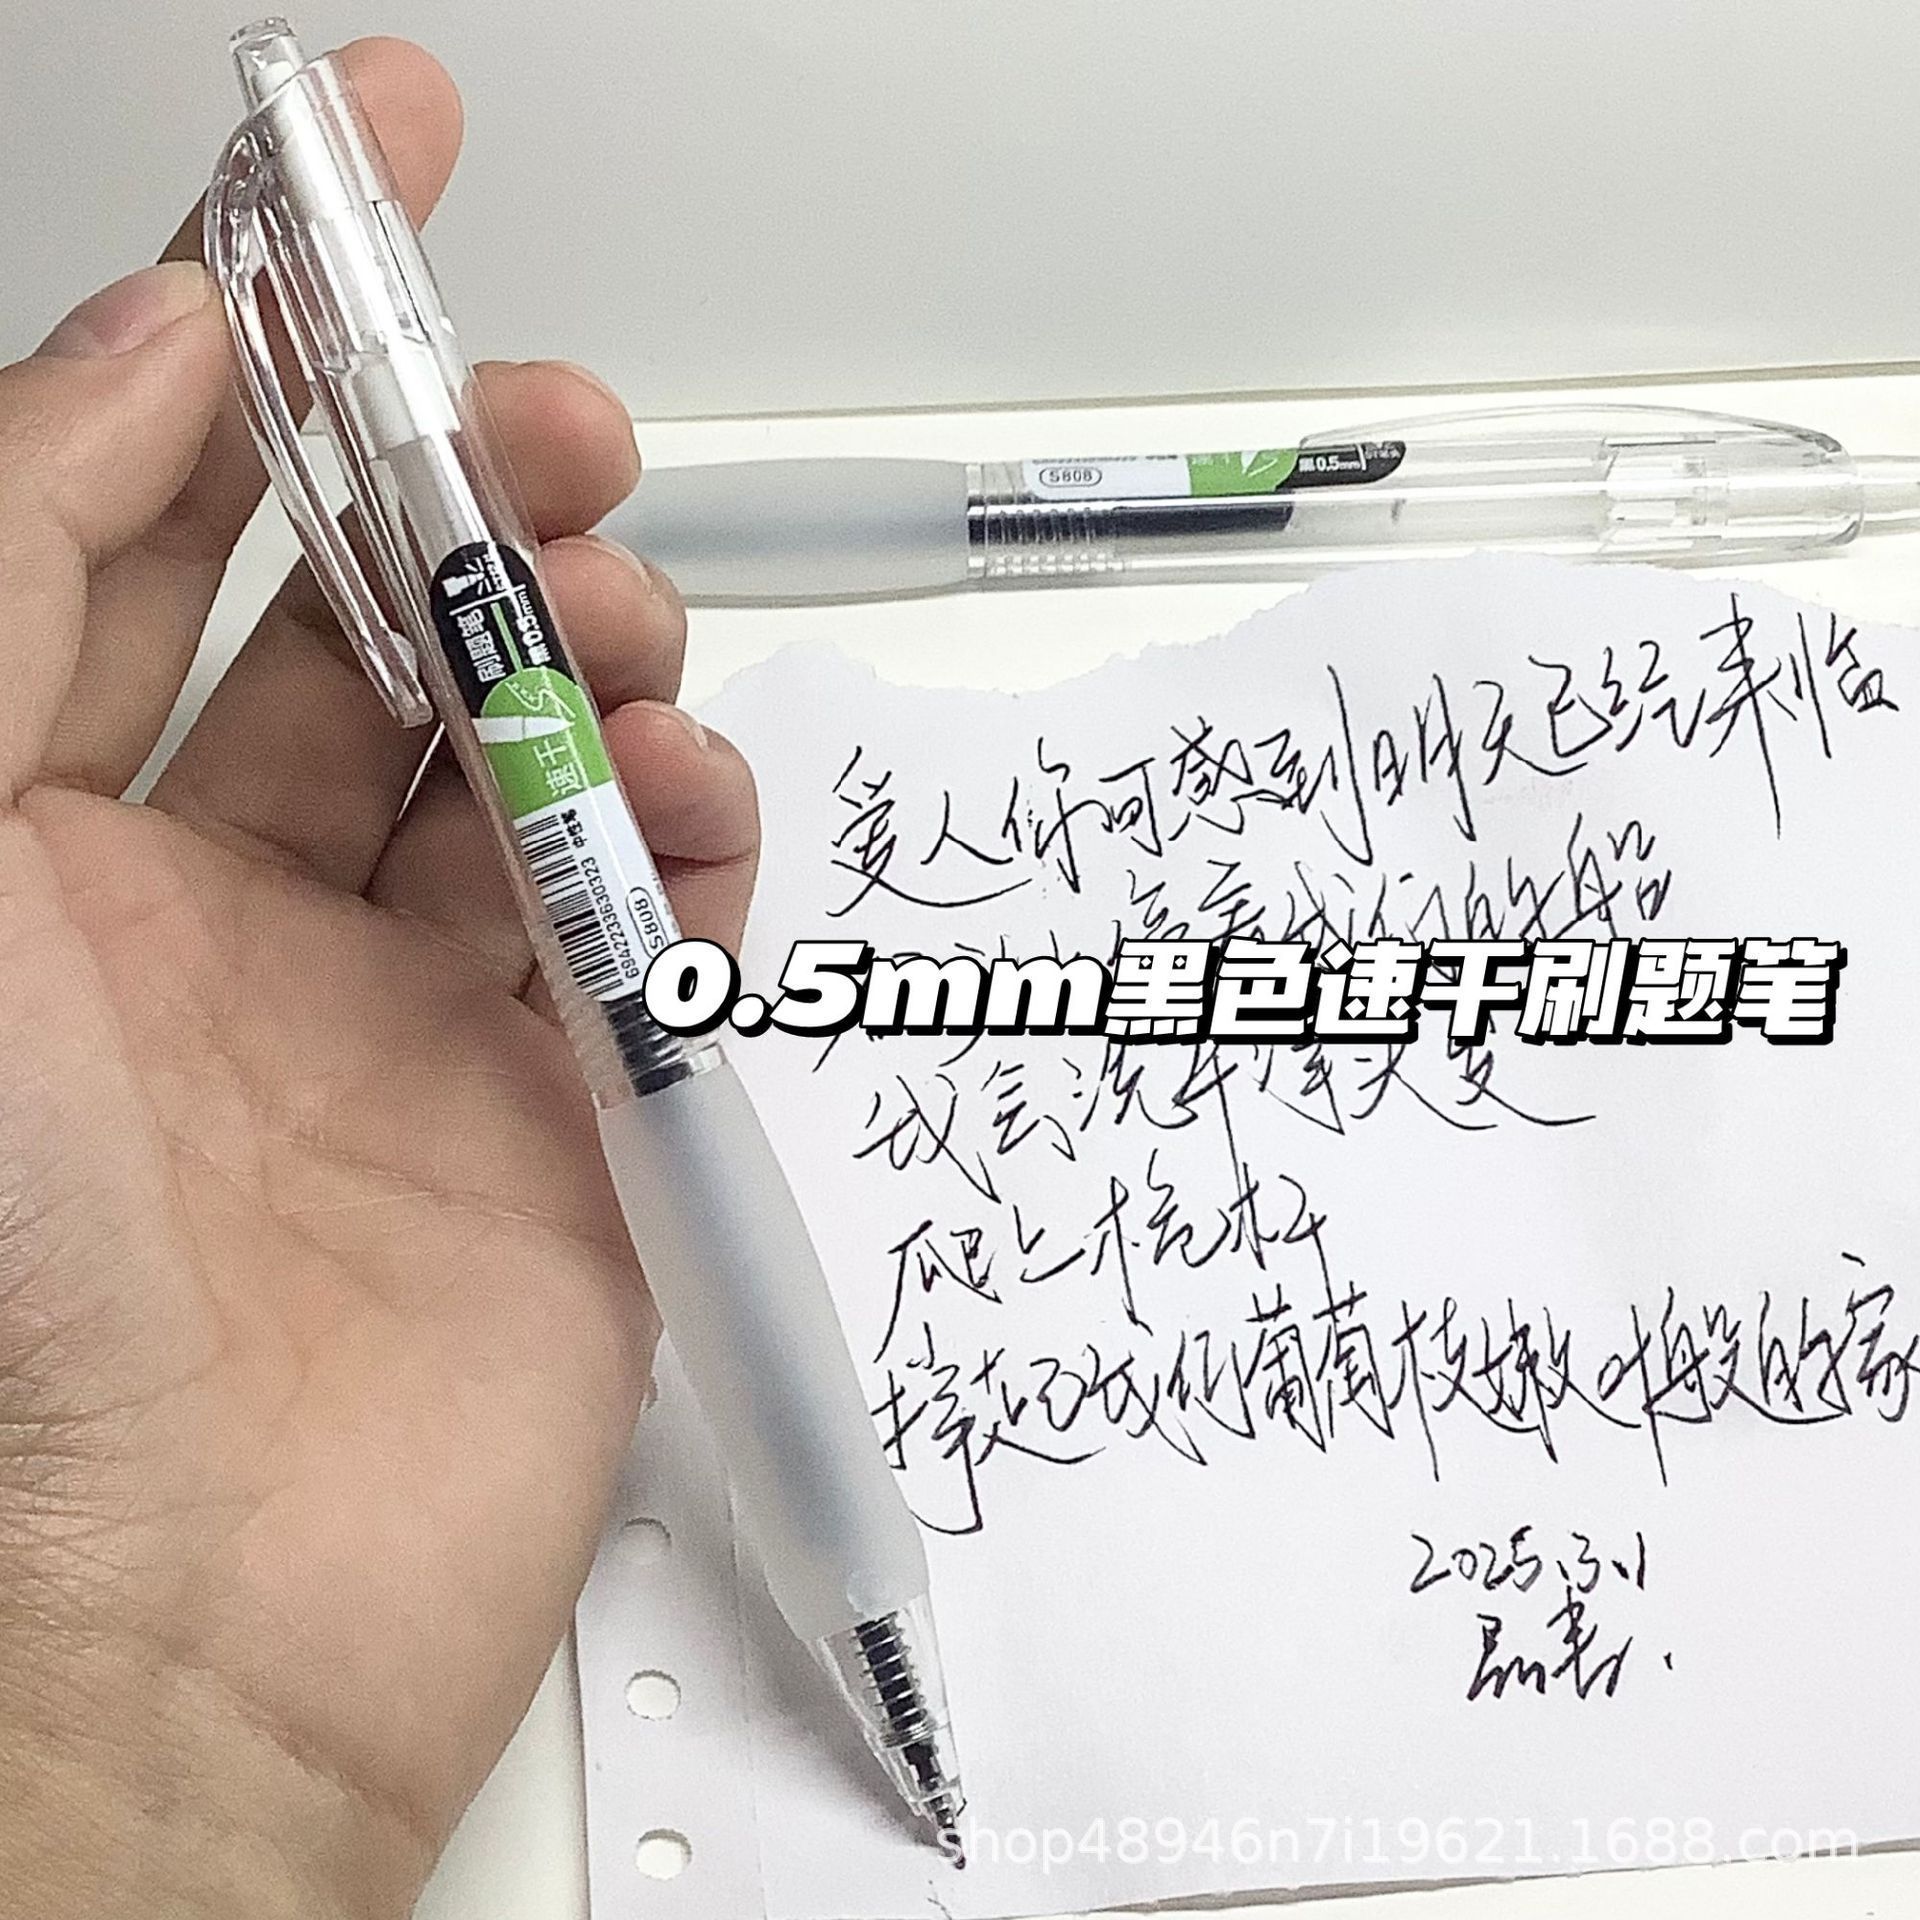 刷题笔
黑0.5mm
速干
中性笔
6942233630323
S808
S808
黑0.5mm
爱人你可感到明天已经来临
我们的船
0.5mm黑色速干刷题笔
我会洗干净头发
爬上桅杆
撑起我们葡萄枝嫩叶般的家
2025.3.1
shop48946n7i19621.1688.com